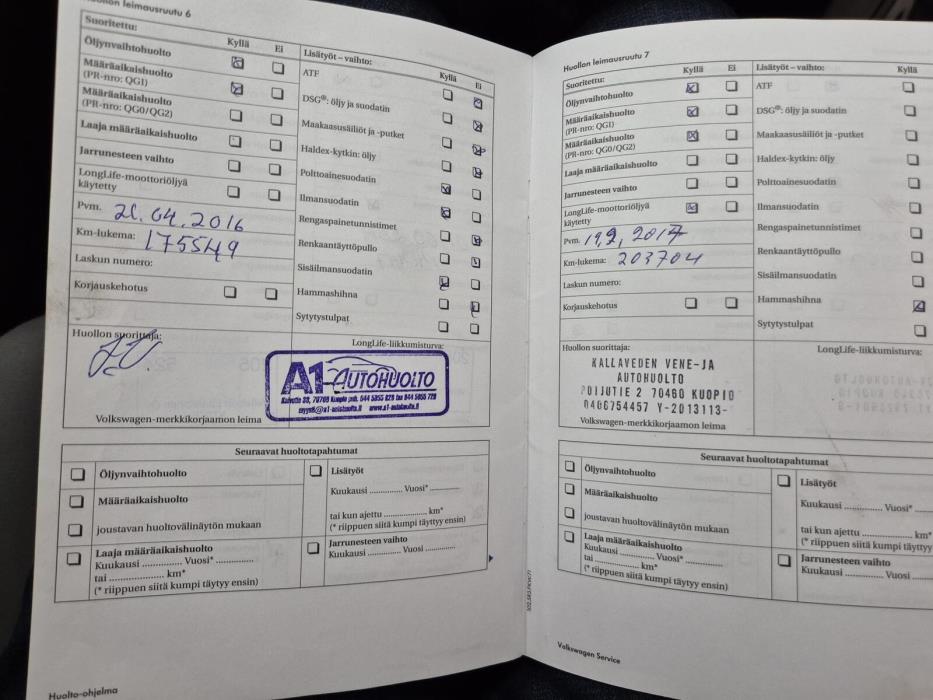 Huollon leimausruutu 6
Suoritettu:
Kyllä
Ei
Öljynvaihtohuolto
Määräaikaishuolto
(PR-nro: QG1)
Määräaikaishuolto
(PR-nro: QG0/QG2)
Laaja määräaikaishuolto
Jarrunesteen vaihto
LongLife-moottoriöljyä
käytetty
Pvm. 04.2016
Km-lukema: 175549
Laskun numero:
Korjauskehotus
Lisätyöt – vaihto:
Kyllä
Ei
ATF
DSG®: öljy ja suodatin
Maakaasusäiliöt ja -putket
Haldex-kytkin: öljy
Polttoainesuodatin
Ilmansuodatin
Rengaspainetunnistimet
Renkaantäyttöpullo
Sisäilmansuodatin
Hammashihna
Sytytystulpat
Huollon suorittaja:
LongLife-liikkumisturva:
A1 AUTOHUOLTO
33, 70700 Kuopio puh. 044 5055 829 fax 044 5055 729
www.a1-autohuolto.fi
Volkswagen-merkkikorjaamon leima
Seuraavat huoltotapahtumat
Öljynvaihtohuolto
Määräaikaishuolto
joustavan huoltovälinäytön mukaan
Laaja määräaikaishuolto
Kuukausi .............. Vuosi* ..............
tai ........................ km*
(* riippuen siitä kumpi täytyy ensin)
Lisätyöt
Kuukausi .............. Vuosi* ............
tai kun ajettu .................. km*
(* riippuen siitä kumpi täyttyy ensin)
Jarrunesteen vaihto
Kuukausi .............. Vuosi ............
Huolto-ohjelma
Huollon leimausruutu 7
Suoritettu:
Kyllä
Ei
Öljynvaihtohuolto
Määräaikaishuolto
(PR-nro: QG1)
Määräaikaishuolto
(PR-nro: QG0/QG2)
Laaja määräaikaishuolto
Jarrunesteen vaihto
LongLife-moottoriöljyä
käytetty
Pvm. 19.2.2017
Km-lukema: 203704
Laskun numero:
Korjauskehotus
Lisätyöt – vaihto:
Kyllä
ATF
DSG®: öljy ja suodatin
Maakaasusäiliöt ja -putket
Haldex-kytkin: öljy
Polttoainesuodatin
Ilmansuodatin
Rengaspainetunnistimet
Renkaantäyttöpullo
Sisäilmansuodatin
Hammashihna
Sytytystulpat
Huollon suorittaja:
LongLife-liikkumisturva:
KALLAVEDEN VENE-JA
AUTOHUOLTO
POIJUTIE 2 70460 KUOPIO
0406754457 Y-2013113-
Volkswagen-merkkikorjaamon leima
Seuraavat huoltotapahtumat
Öljynvaihtohuolto
Määräaikaishuolto
joustavan huoltovälinäytön mukaan
Laaja määräaikaishuolto
Kuukausi .............. Vuosi* ..............
tai ........................ km*
(* riippuen siitä kumpi täytyy ensin)
Lisätyöt
Kuukausi .............. Vuosi
tai kun ajettu .................. km*
(* riippuen siitä kumpi täyttyy
Jarrunesteen vaihto
Kuukausi .............. Vuosi
Volkswagen Service